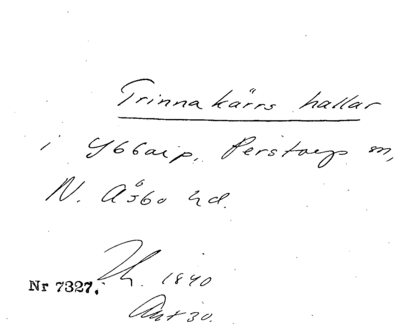 Trinnakärrs hallar
i Ybbarp, Perstorp sn,
N. Åsbo hd.
1840
Nr 7327.
Ant 30.